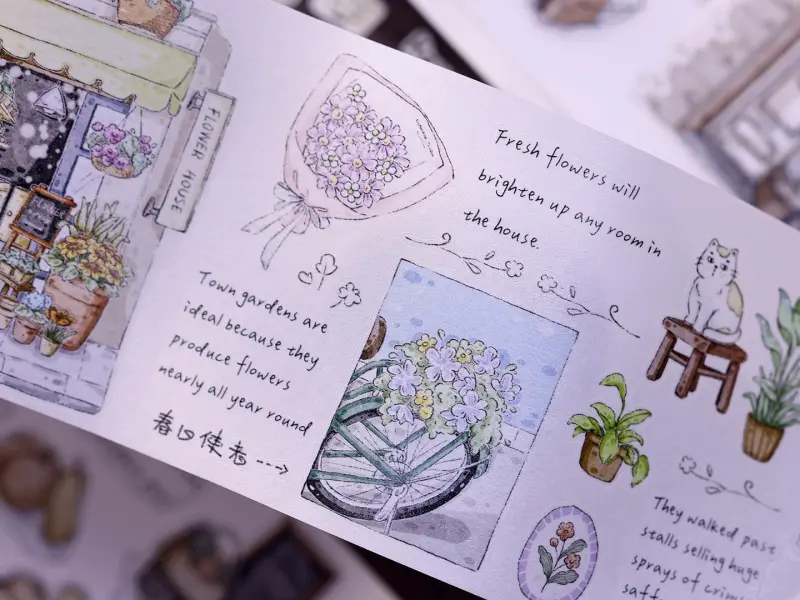 FLOWER HOUSE
Fresh flowers will
brighten up any room in
the house.
Town gardens are
ideal because they
produce flowers
nearly all year round
春日使者
They walked past
stalls selling huge
sprays of